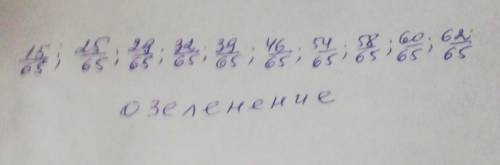 15/65; 25/65; 29/65; 32/65; 39/65; 46/65; 54/65; 58/65; 60/65; 62/65
озеленение